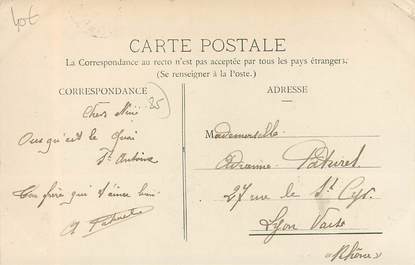 40€
CARTE POSTALE
La Correspondance au recto n'est pas acceptée par tous les pays étrangers.
(Se renseigner à la Poste.)
CORRESPONDANCE
85
Chez
Ous qu'est le Quai
St Antoine
Ton frère qui t'aime bien
A
ADRESSE
Mademoiselle
Adrienne Paturel
27 rue de St Cyr
Lyon Vaise
(Rhône)